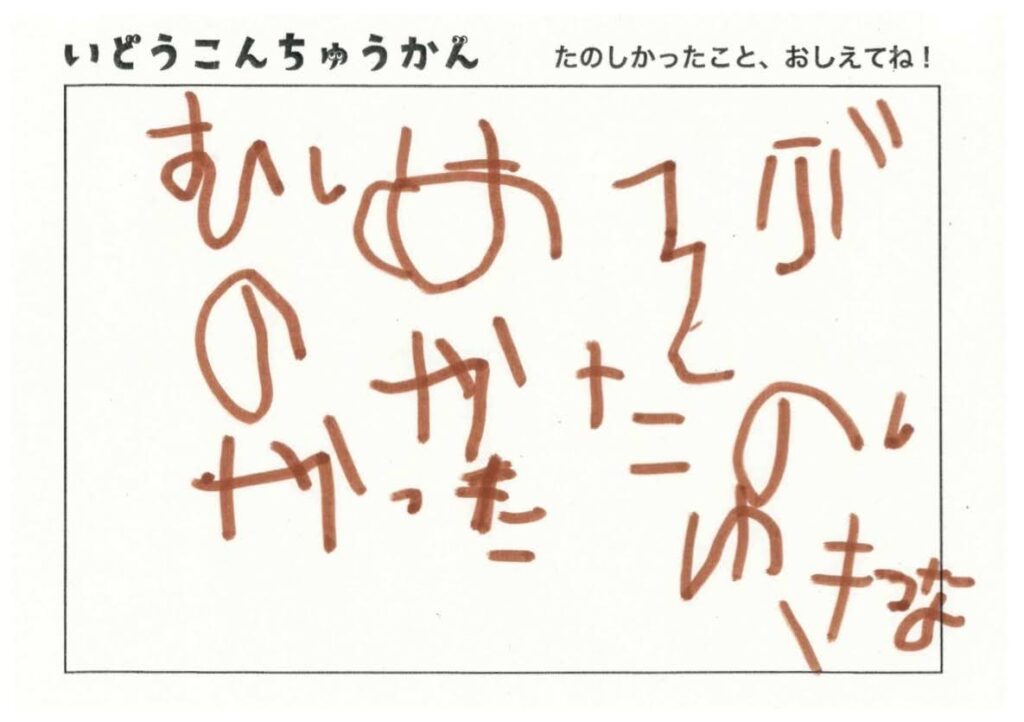 いどうこんちゅうかん
たのしかったこと、おしえてね!
むしあそぶ
のがたのし
かった
ゆきつな